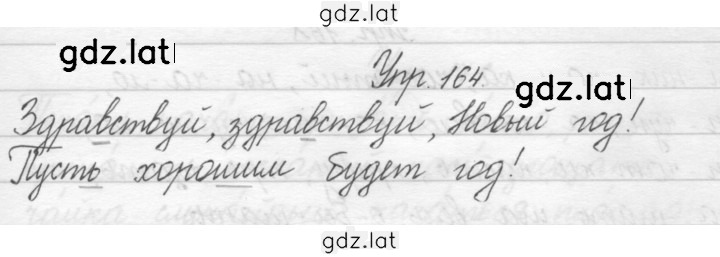 gdz.lat
gdz.lat
Упр. 164
gdz.lat
Здравствуй, здравствуй, Новый год!
Пусть хорошим будет год!
gdz.lat